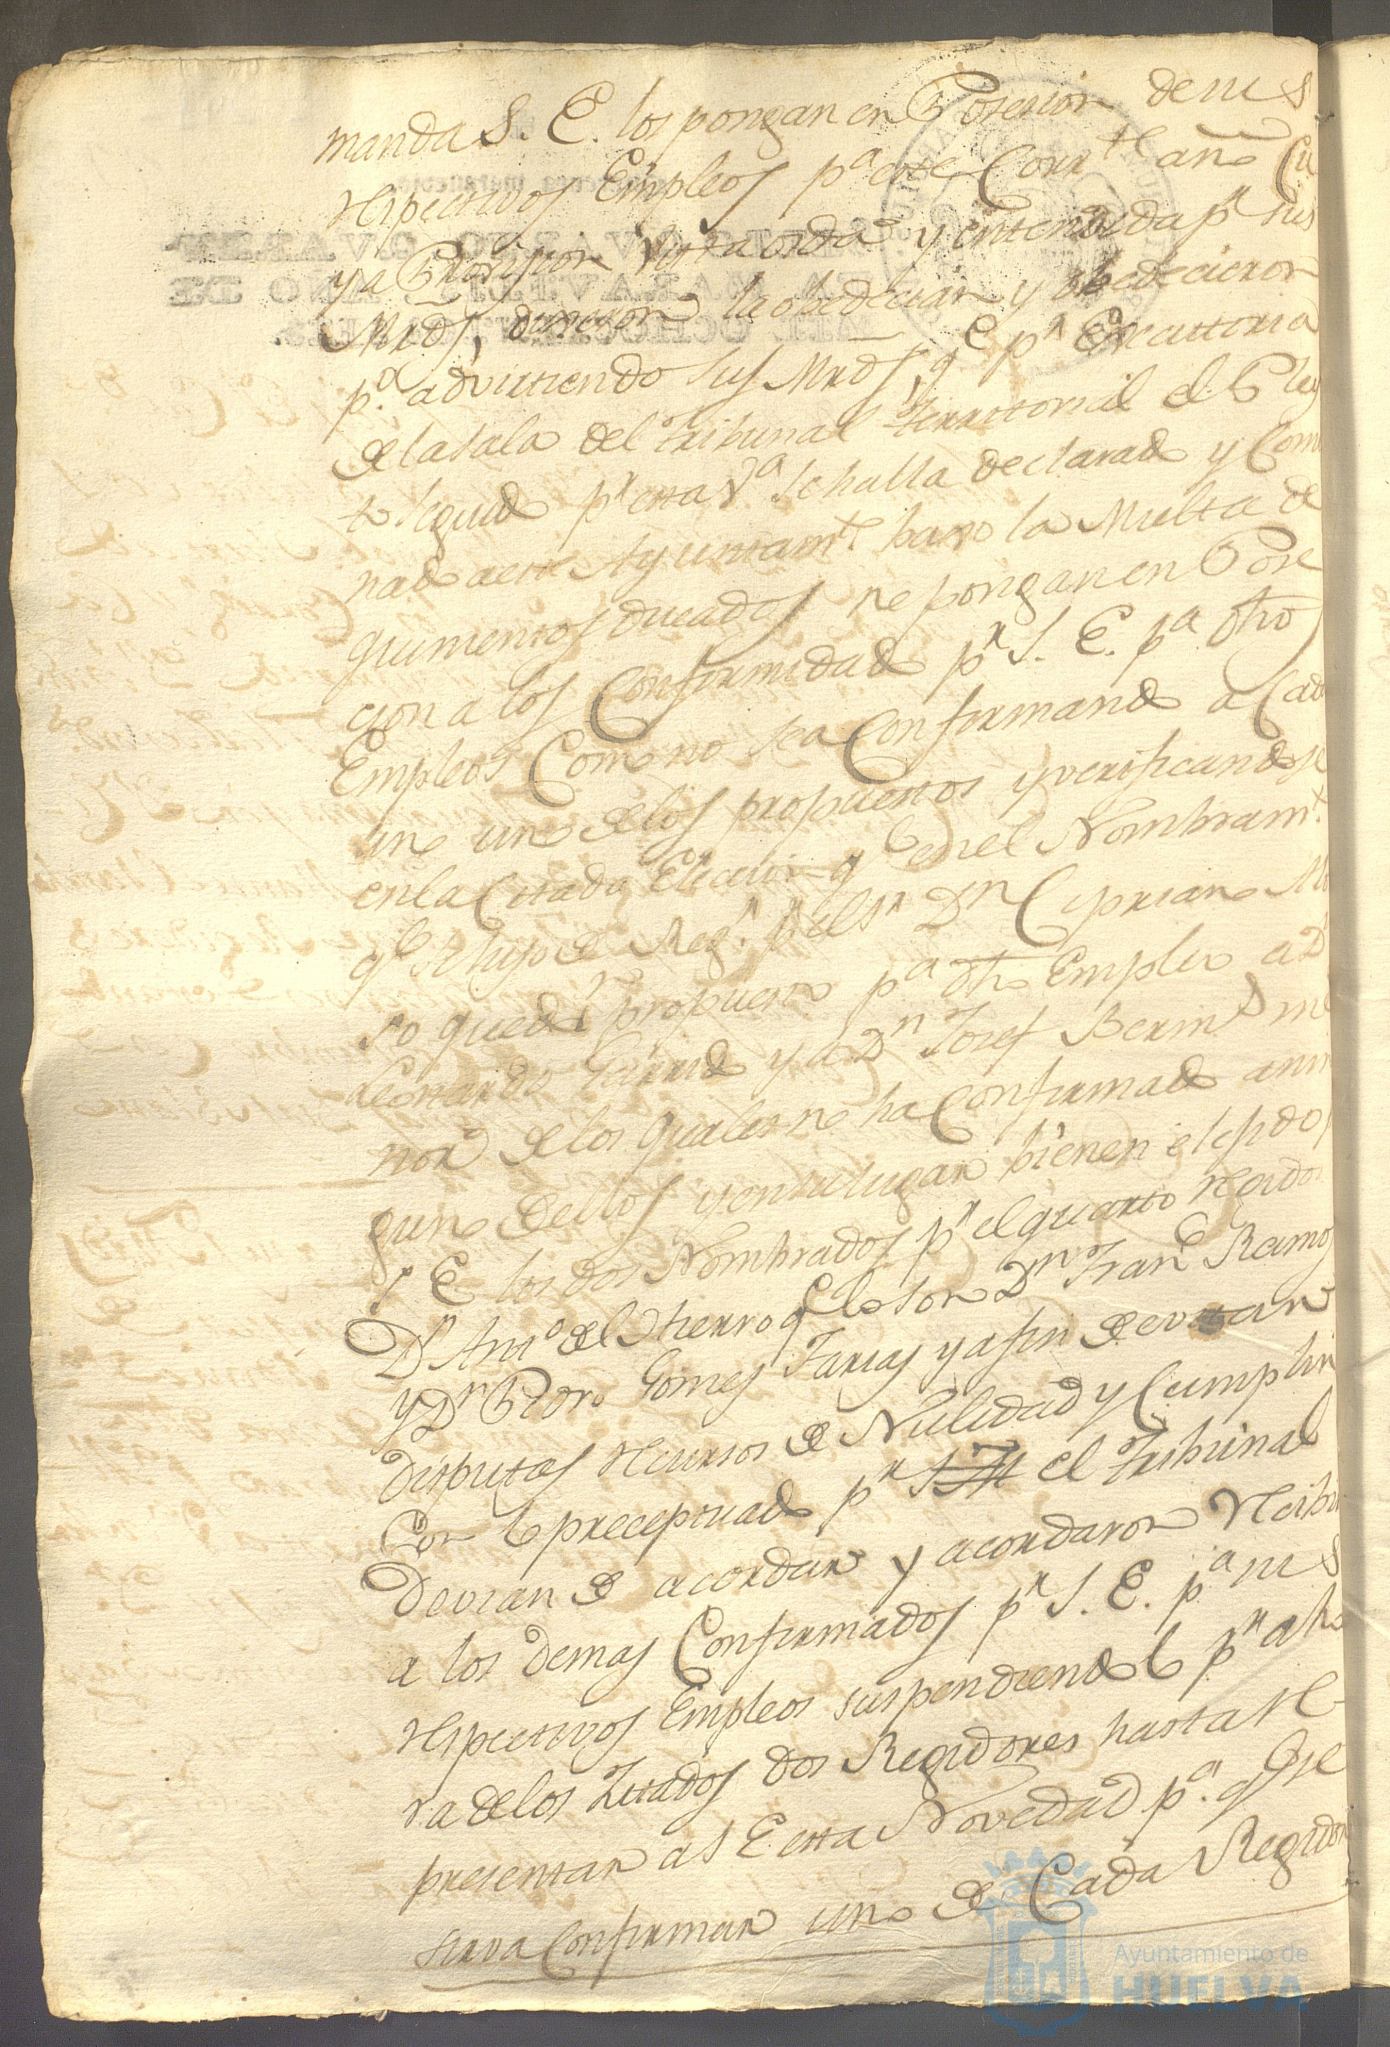 manda S. E. los pongan en Posesion de sus
respectivos Empleos pª este Corrte año Cu
ya Prosision vista oida y entendida pr sus
Mrds, dixeron la obedecian y obedecieron
pº advirtiendo sus Mrds, qe pr Executoria
de la sala del Tribunal Territorial el Pley
to seguido pr esta Vª se halla declarado y Comi
nado a este Ayuntamto baxo la Multa de
quinientos ducados se pongan en Pose
cion a los Conformidad pr S. E. pª otros
Empleos Como no sea Confirmando a Cada
uno uno de los propuestos y verificandose
en la Citada Eleccion qe en el Nombramto
qe se hiso de Regr pr el Sr Dn Cipriano Mo
so quedó propuesto pª otro Empleo a Dn
Leonardo Garrido y a Dn Josef Bermdo me
nor de los quales no ha Confirmado anin
guno de ellos y en su lugar bienen elejidos
S E los dos Nombrados pr el quarto regidor
Dn Anto del Hierro qe lo son Dn Franco Ramos
y Dn Pedro Gomes Farias y a fin de evitar
disputas recursos de Nulidad y Cumplir
Con lo preceptuado pr el Tribunal
Devian de acordar y acordaron recibir
a los demas Confirmados pr S. E. pª sus
respectivos Empleos suspendiendolo pr aho
ra de los Zitados dos Regidores hasta re
presentar a S E esta Novedad pª qe se
sirva Confirmar uno de Cada Regidor
Ayuntamiento de
HUELVA